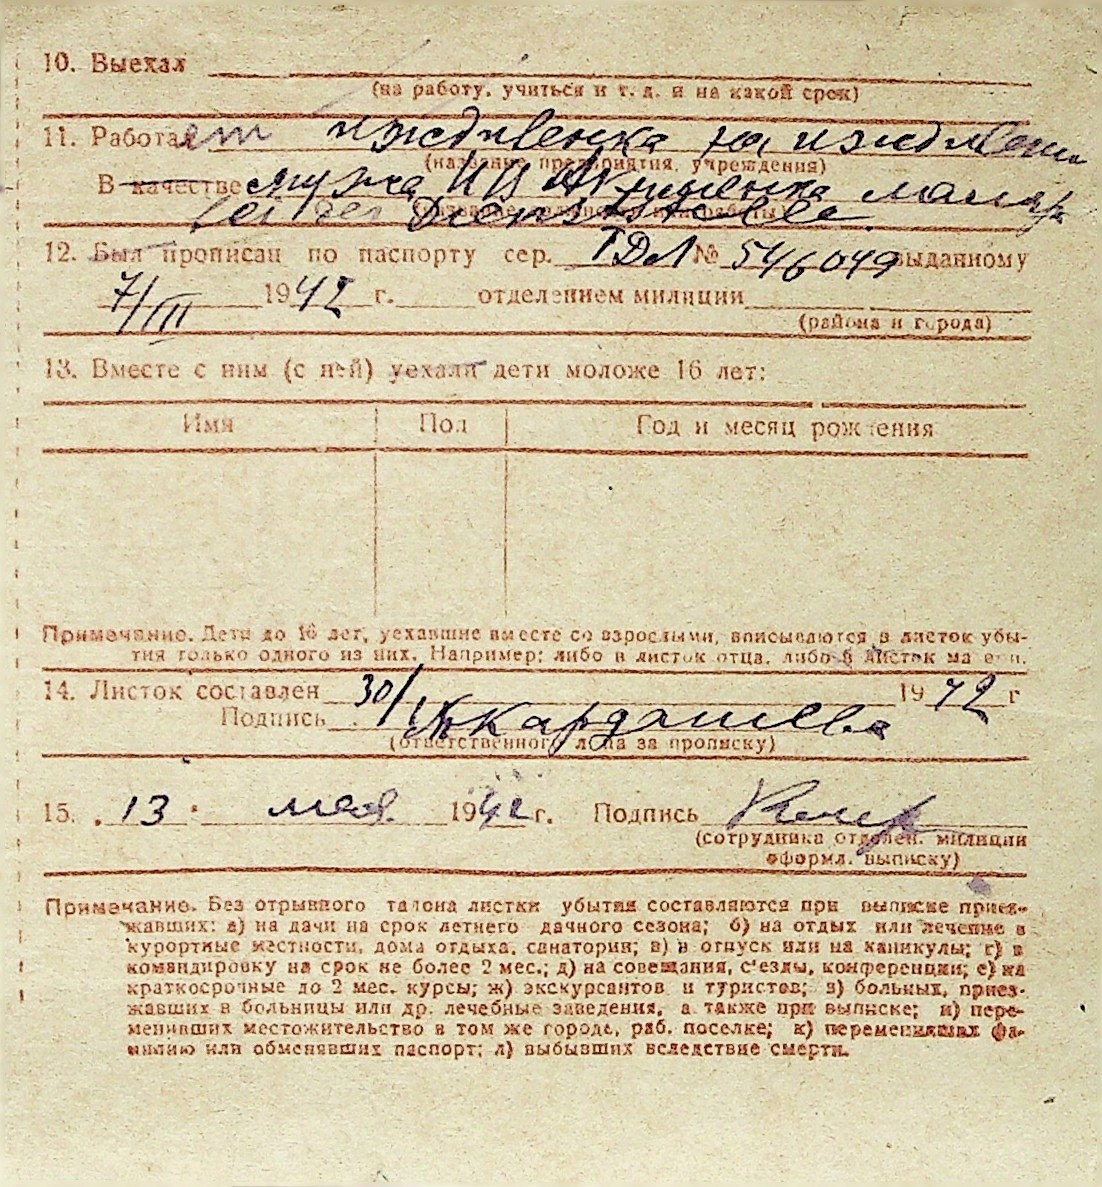 10. Выехал
(на работу, учиться и т. д. и на какой срок)
11. Работает иждивенка на иждивении
(название предприятия, учреждения)
В качестве мужа И И маляр
bei der Dienststelle
12. Был прописан по паспорту сер. ТДЛ № 546049 выданному
7/III 1942 г. отделением милиции
(района и города)
13. Вместе с ним (с ней) уехали дети моложе 16 лет:
Имя Пол Год и месяц рождения
Примечание. Дети до 16 лет, уехавшие вместе со взрослыми, вписываются в листок убы-
тия только одного из них. Например: либо в листок отца, либо в листок матери.
14. Листок составлен 30/ 1942 г
Подпись Кардашева
(ответственного лица за прописку)
15. 13 мая 1942 г. Подпись
(сотрудника отделен. милиции
оформл. выписку)
Примечание. Без отрывного талона листки убытия составляются при выписке приез-
жавших: а) на дачи на срок летнего дачного сезона; б) на отдых или лечение в
курортные местности, дома отдыха, санатории; в) в отпуск или на каникулы; г) в
командировку на срок не более 2 мес.; д) на совещания, с'езды, конференции; е) на
краткосрочные до 2 мес. курсы; ж) экскурсантов и туристов; з) больных, приез-
жавших в больницы или др. лечебные заведения, а также при выписке; и) пере-
менивших местожительство в том же городе, раб. поселке; к) переменивших фа-
милию или обменявших паспорт; л) выбывших вследствие смерти.